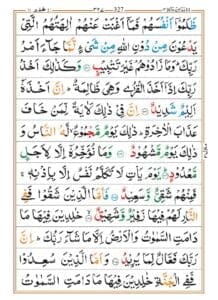 327
ظَلَمُوْۤا اَنْفُسَهُمْ فَمَاۤ اَغْنَتْ عَنْهُمْ اٰلِهَتُهُمُ الَّتِیْ
یَدْعُوْنَ مِنْ دُوْنِ اللّٰهِ مِنْ شَیْءٍ لَّمَّا جَآءَ اَمْرُ
رَبِّكَ ؕ وَمَا زَادُوْهُمْ غَیْرَ تَتْبِیْبٍ وَكَذٰلِكَ اَخْذُ
رَبِّكَ اِذَاۤ اَخَذَ الْقُرٰی وَهِیَ ظَالِمَةٌ ؕ اِنَّ اَخْذَهٗۤ
اَلِیْمٌ شَدِیْدٌ اِنَّ فِیْ ذٰلِكَ لَاٰیَةً لِّمَنْ خَافَ
عَذَابَ الْاٰخِرَةِ ؕ ذٰلِكَ یَوْمٌ مَّجْمُوْعٌ ۙ لَّهُ النَّاسُ وَ
ذٰلِكَ یَوْمٌ مَّشْهُوْدٌ وَمَا نُؤَخِّرُهٗۤ اِلَّا لِاَجَلٍ
مَّعْدُوْدٍ یَوْمَ یَاْتِ لَا تَكَلَّمُ نَفْسٌ اِلَّا بِاِذْنِهٖ ۚ
فَمِنْهُمْ شَقِیٌّ وَّسَعِیْدٌ فَاَمَّا الَّذِیْنَ شَقُوْا فَفِی
النَّارِ لَهُمْ فِیْهَا زَفِیْرٌ وَّشَهِیْقٌ خٰلِدِیْنَ فِیْهَا مَا
دَامَتِ السَّمٰوٰتُ وَالْاَرْضُ اِلَّا مَا شَآءَ رَبُّكَ ؕ اِنَّ
رَبَّكَ فَعَّالٌ لِّمَا یُرِیْدُ وَاَمَّا الَّذِیْنَ سُعِدُوْا
فَفِی الْجَنَّةِ خٰلِدِیْنَ فِیْهَا مَا دَامَتِ السَّمٰوٰتُ